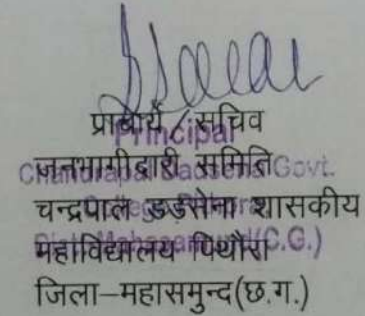 प्राचार्य / सचिव
Principal
जनभागीदारी समिति
Chandrapal Dadsena Govt.
चन्द्रपाल डड़सेना शासकीय
College
महाविद्यालय पिथौरा
Dist. Mahasamund (C.G.)
जिला–महासमुन्द(छ.ग.)